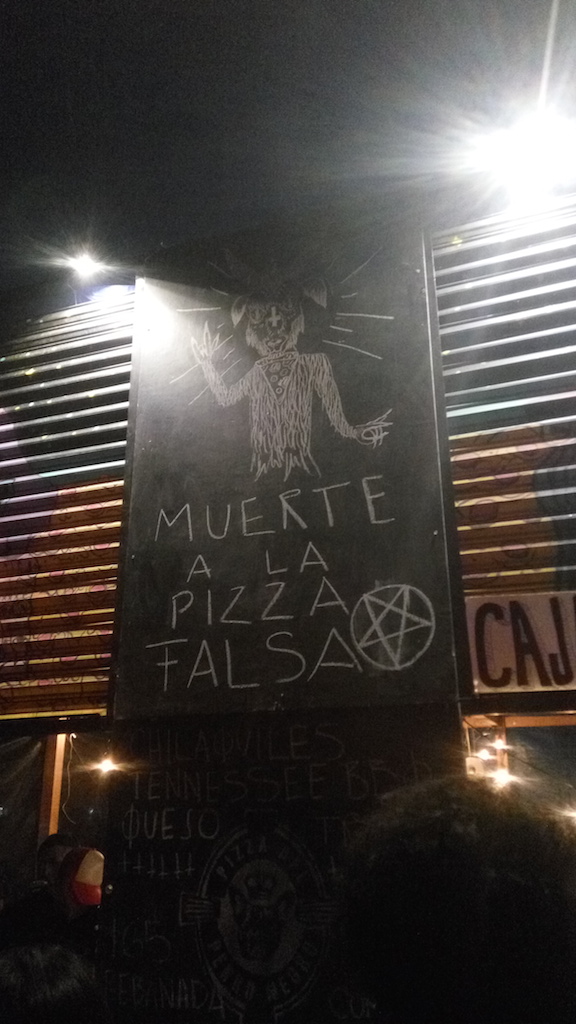 MUERTE
A LA
PIZZA
FALSA
CAJ
CHILAQUILES
TENNESSEE BBQ
QUESO
PIZZA DEL
PERRO NEGRO
REBANADA